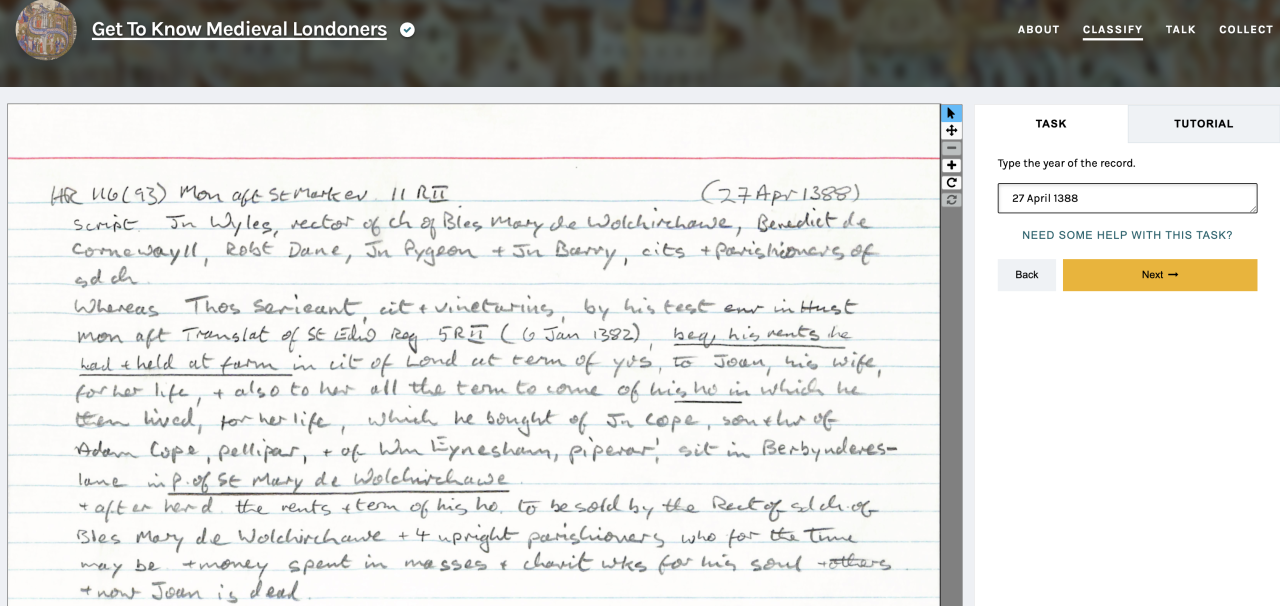 Get To Know Medieval Londoners
ABOUT CLASSIFY TALK COLLECT
HR 116(93) Mon aft St Mark ev. 11 RII (27 Apr 1388)
script. Jn Wyles, rector of ch of Bles Mary de Wolchirchawe, Benedict de
Cornewayll, Robt Dane, Jn Pygeon + Jn Barry, cits + parishioners of
sd ch.
Whereas Thos Serieant, cit + vinetarius, by his test enr in Hust
Mon aft Translat of St Edw Reg 5RII (6 Jan 1382), beq his rents he
had + held at farm in cit of Lond at term of yrs, to Joan, his wife,
for her life, + also to her all the term to come of his ho in which he
then lived, for her life, which he bought of Jn Cope, son + hr of
Adam Cope, pellipar, + of Wm Eynesham, piperar', sit in Berbynderes-
lane in p. of St Mary de Wolchirchawe
+ after her d. the rents + term of his ho. to be sold by the Rect of sd ch. of
Bles Mary de Wolchirchawe + 4 upright parishioners who for the time
may be + money spent in masses + charit wks for his soul + others
+ now Joan is dead.
TASK TUTORIAL
Type the year of the record.
27 April 1388
NEED SOME HELP WITH THIS TASK?
Back Next →